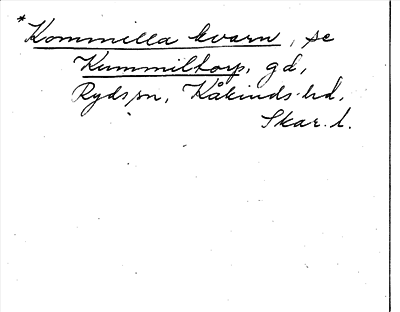 *Kommilla kvarn, se
Kummiltorp, gd,
Ryds sn, Kåkinds hd,
Skar. l.